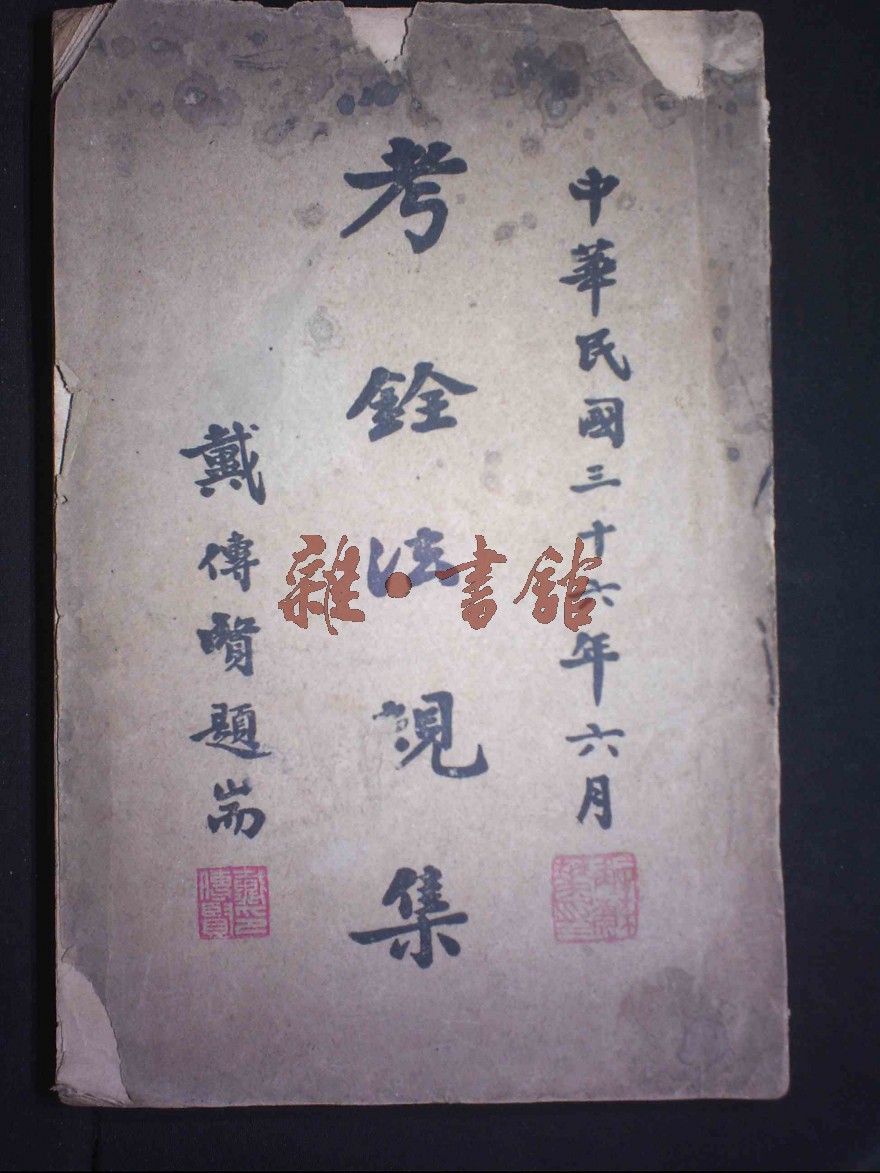 中華民國三十六年六月
考銓法規集
戴傳賢題耑
戴印傳賢
雜·書館